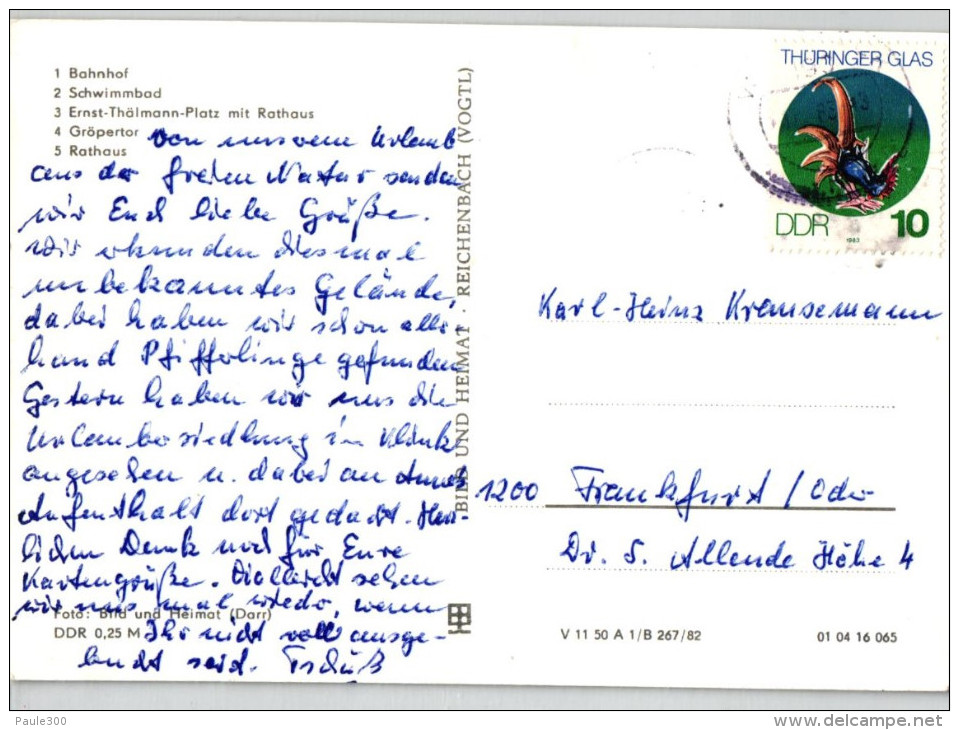 1 Bahnhof
2 Schwimmbad
3 Ernst-Thälmann-Platz mit Rathaus
4 Gröpertor
5 Rathaus
von unserem Urlaub
aus der freien Natur senden
wir Euch liebe Grüße.
Wir erkunden diesmal
unbekanntes Gelände,
dabei haben wir schon aller
hand Pfifferlinge gefunden
Gestern haben wir uns die
Urlaubersiedlung in Klink
angesehen u. dabei an
Aufenthalt dort gedacht. Herz-
lichen Dank noch für Eure
Kartengrüße. Vielleicht sehen
wir uns mal wieder, wenn
Ihr nicht voll ausge-
bucht seid. Tschüß
Foto: Bild und Heimat (Darr)
DDR 0,25 M
BILD UND HEIMAT · REICHENBACH (VOGTL)
THÜRINGER GLAS
DDR 10
1983
Karl-Heinz Krausemann
1200 Frankfurt/Oder
Dr. S. Allende Höhe 4
V 11 50 A 1/B 267/82
01 04 16 065
Paule300
www.delcampe.net